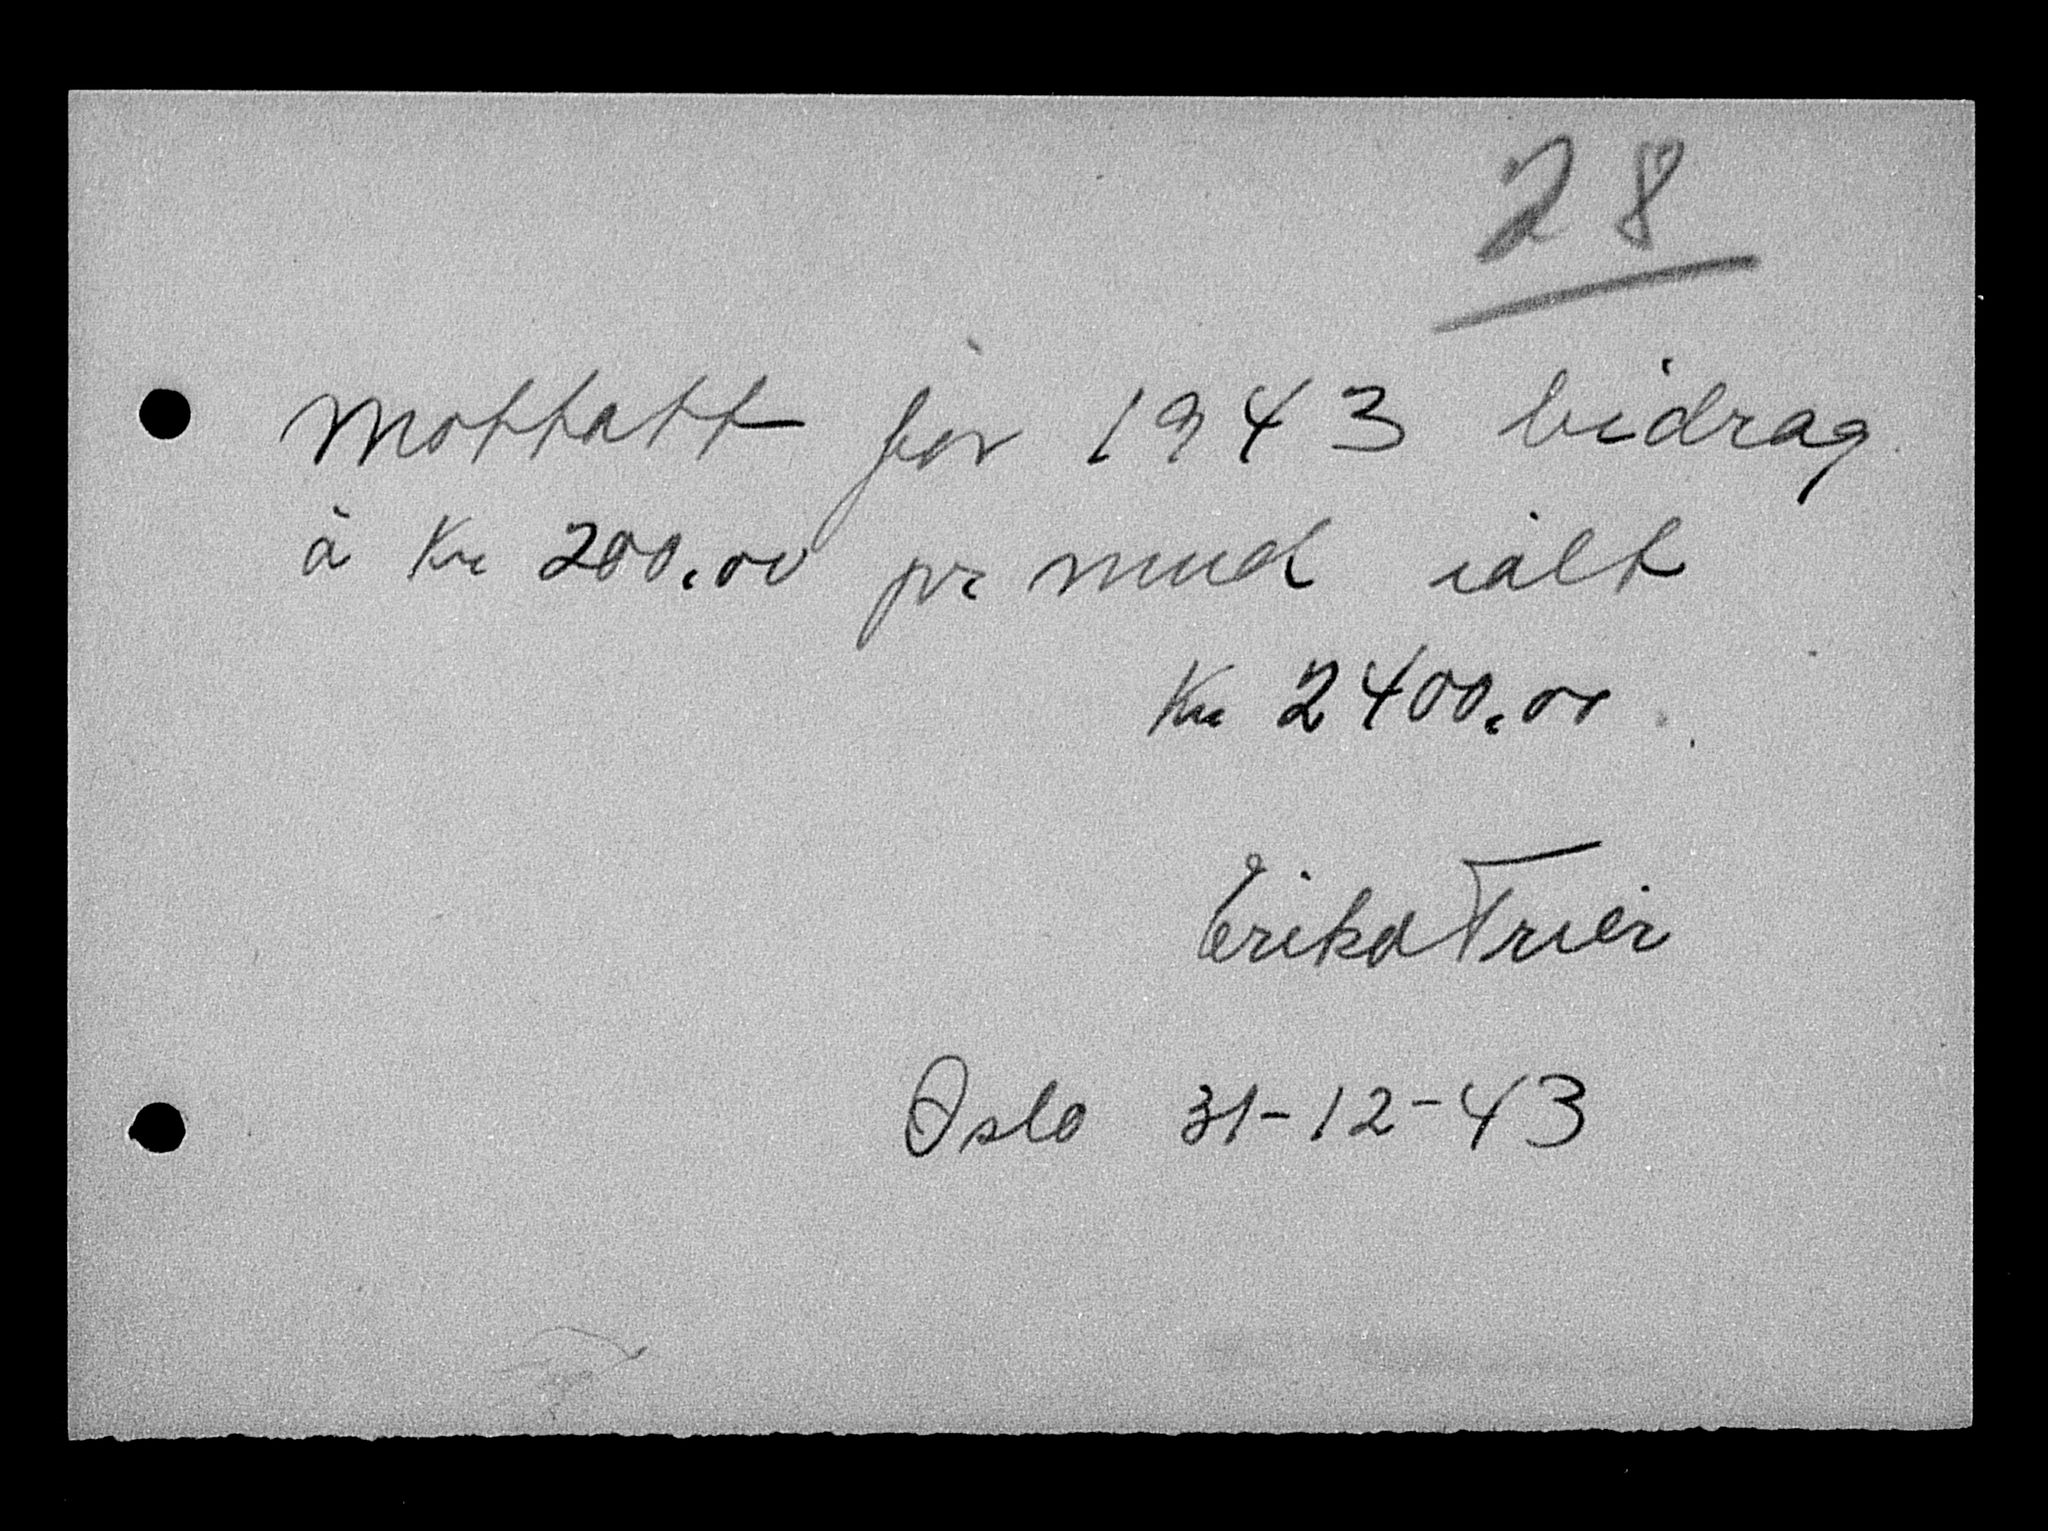 28
Mottatt for 1943 bidrag
à Kr 200.00 pr mnd ialt
Kr 2400.00
Erika Trier
Oslo 31-12-43